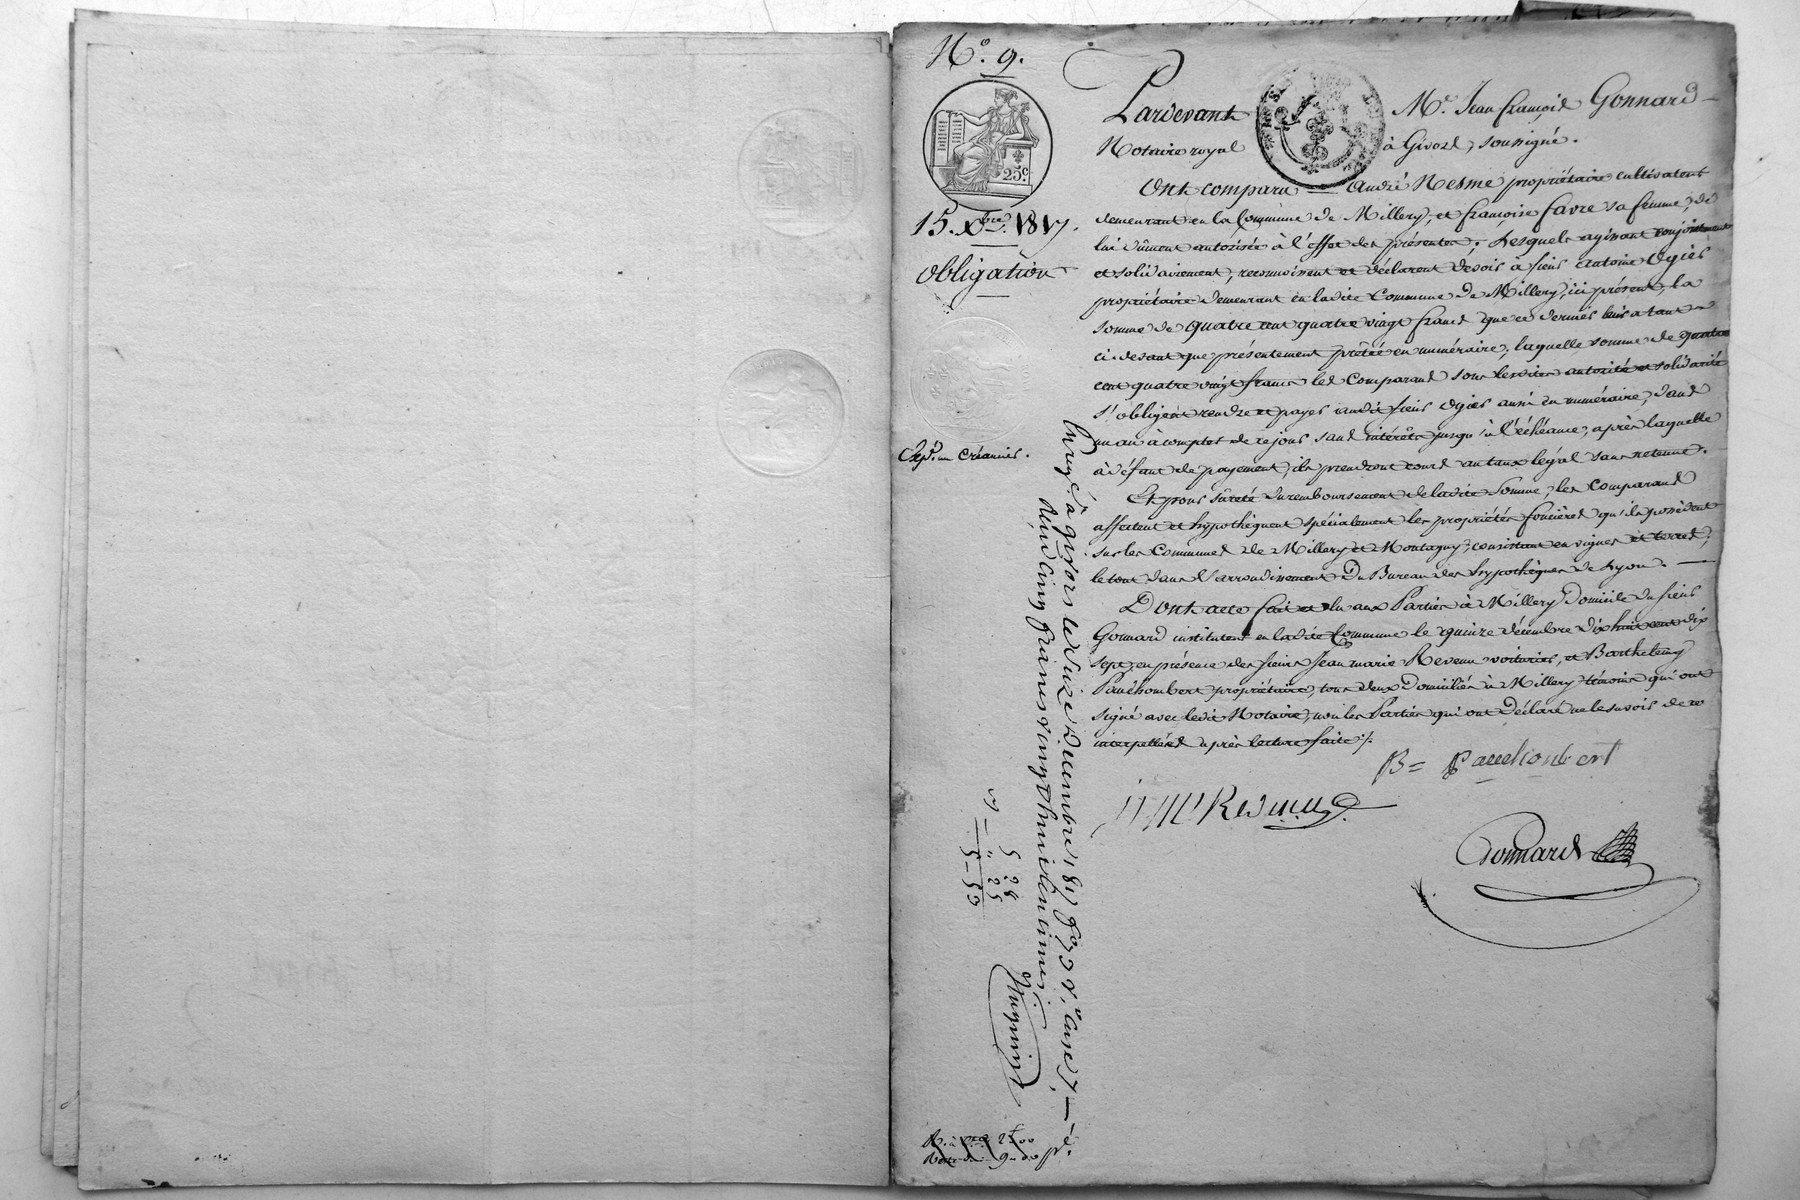 N.° 9.
25.c
15. Xbre. 1817.
Obligation
Exp.on en créancier.
Pardevant M.e Jean françois Gonnard
Notaire royal à Givors, soussigné.
Ont comparu André Nesme propriétaire cultivateur
demeurant en la Commune de Millery, et françoise favre sa femme, de
lui dûment autorisée à l'effet des présentes; Lesquels agissant conjointement
et solidairement, reconnoissent et déclarent devoir à sieur Antoine Ogier
propriétaire demeurant en ladite Commune de Millery, ici présent, la
somme de quatre cent quatre vingt francs que ce dernier leur a tant
ci-devant que présentement prêtée en numéraire, laquelle somme de quatre
cent quatre vingt francs les Comparans sous lesdites autorité et solidarité
s'obligent rendre et payer audit sieur Ogier aussi en numéraire, dans
un an à compter de ce jour sans intérêts jusqu'à l'échéance, après laquelle
à défaut de payement, ils prendront cours au taux légal sans retenue.
Et pour sûreté du remboursement de ladite Somme, les Comparans
affectent et hypothèquent spécialement les propriétés foncières qu'ils possèdent
sur les Communes de Millery et Montagny, consistant en vignes et terres,
le tout dans l'arrondissement du Bureau des hypothèques de Lyon.
Dont acte fait et lu aux Parties à Millery Domicile du sieur
Gonnard instituteur en ladite Commune le quinze décembre dix huit cent dix
sept, en présence des sieurs Jean marie Revenu voiturier, et Barthelemy
Pauchombert propriétaire, tous deux Domiciliés à Millery témoins qui ont
signé avec ledit Notaire, non les Parties qui ont déclaré ne le savoir de ce
interpellées après lecture faite ./.
B =
Gonnard
Enregé à givors le seize Decembre 1817 fo 72 v.o Case 7,
Reçu cinq francs vingt huit centimes
5 28
25
5 - 53